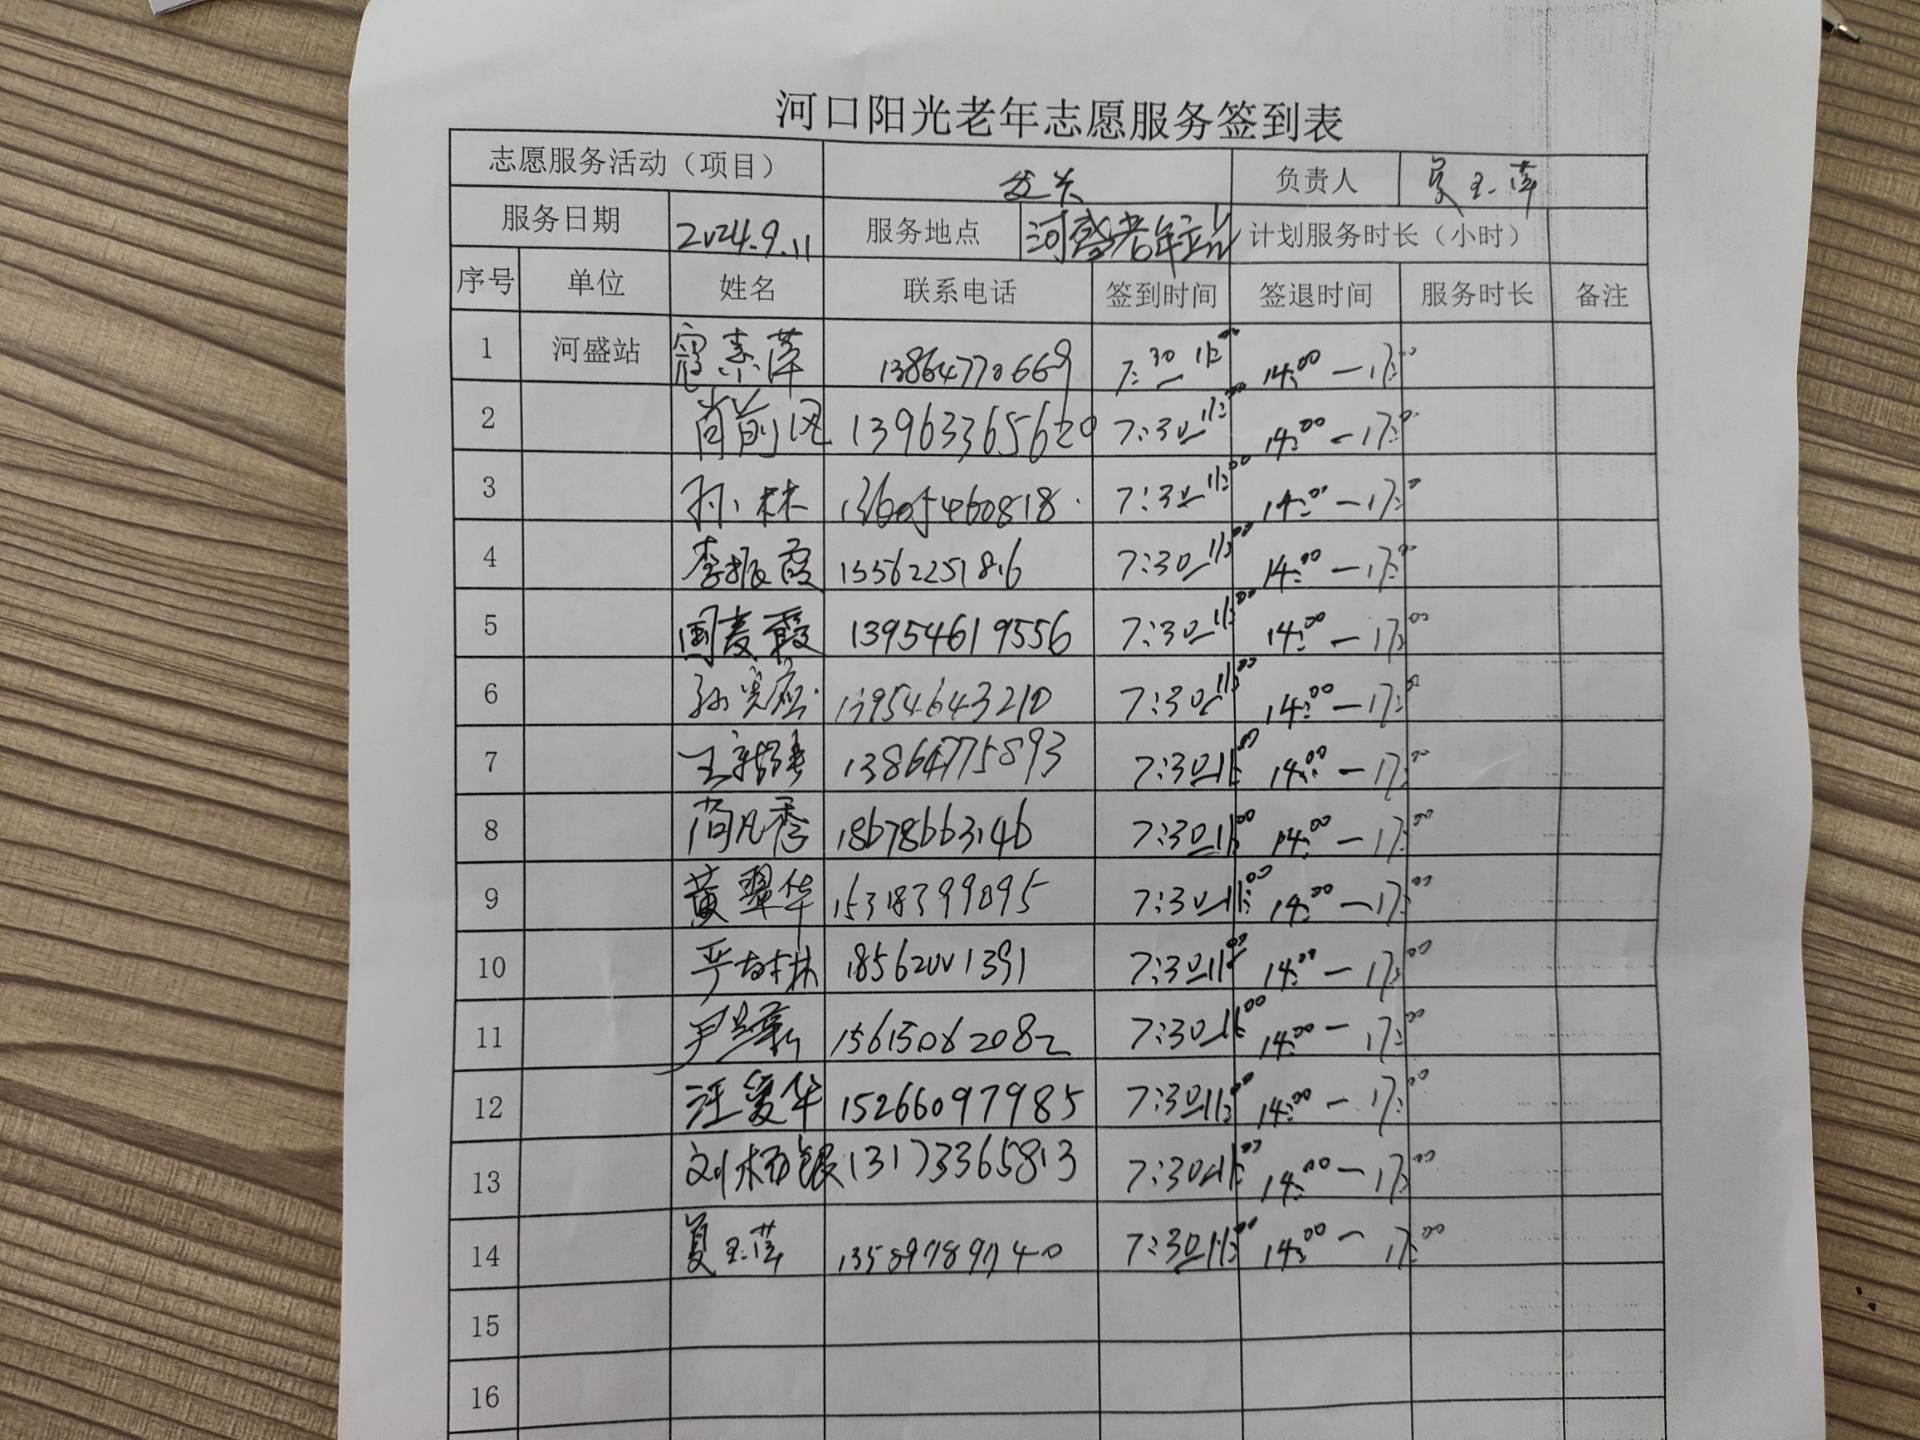 河口阳光老年志愿服务签到表
志愿服务活动（项目） 负责人 夏玉萍
服务日期 2024.9.11 服务地点 河盛老年站 计划服务时长（小时）
序号 单位 姓名 联系电话 签到时间 签退时间 服务时长 备注
1 河盛站 寇素萍 13864770669 7:30-11:00 14:00-17:00
2 肖前风 13963365620 7:30-11:00 14:00-17:00
3 孙小林 13605460818 7:30-11:00 14:00-17:00
4 李振霞 15562251816 7:30-11:00 14:00-17:00
5 国麦霞 13954619556 7:30-11:00 14:00-17:00
6 孙宪 13954643210 7:30-11:00 14:00-17:00
7 王 13864775893 7:30-11:00 14:00-17:00
8 简凡秀 18678663146 7:30-11:00 14:00-17:00
9 黄翠华 15318399095 7:30-11:00 14:00-17:00
10 严树林 18562001391 7:30-11:00 14:00-17:00
11 尹兰新 15615062082 7:30-11:00 14:00-17:00
12 汪爱华 15266097985 7:30-11:00 14:00-17:00
13 刘杨银 13173365813 7:30-11:00 14:00-17:00
14 夏玉萍 13589789740 7:30-11:00 14:00-17:00
15
16